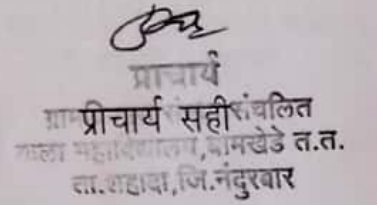 प्राचार्य
ग्राम प्रीचार्य सही संचलित
महाविद्यालय, बामखेडे त.त.
ता.शहादा,जि.नंदुरबार